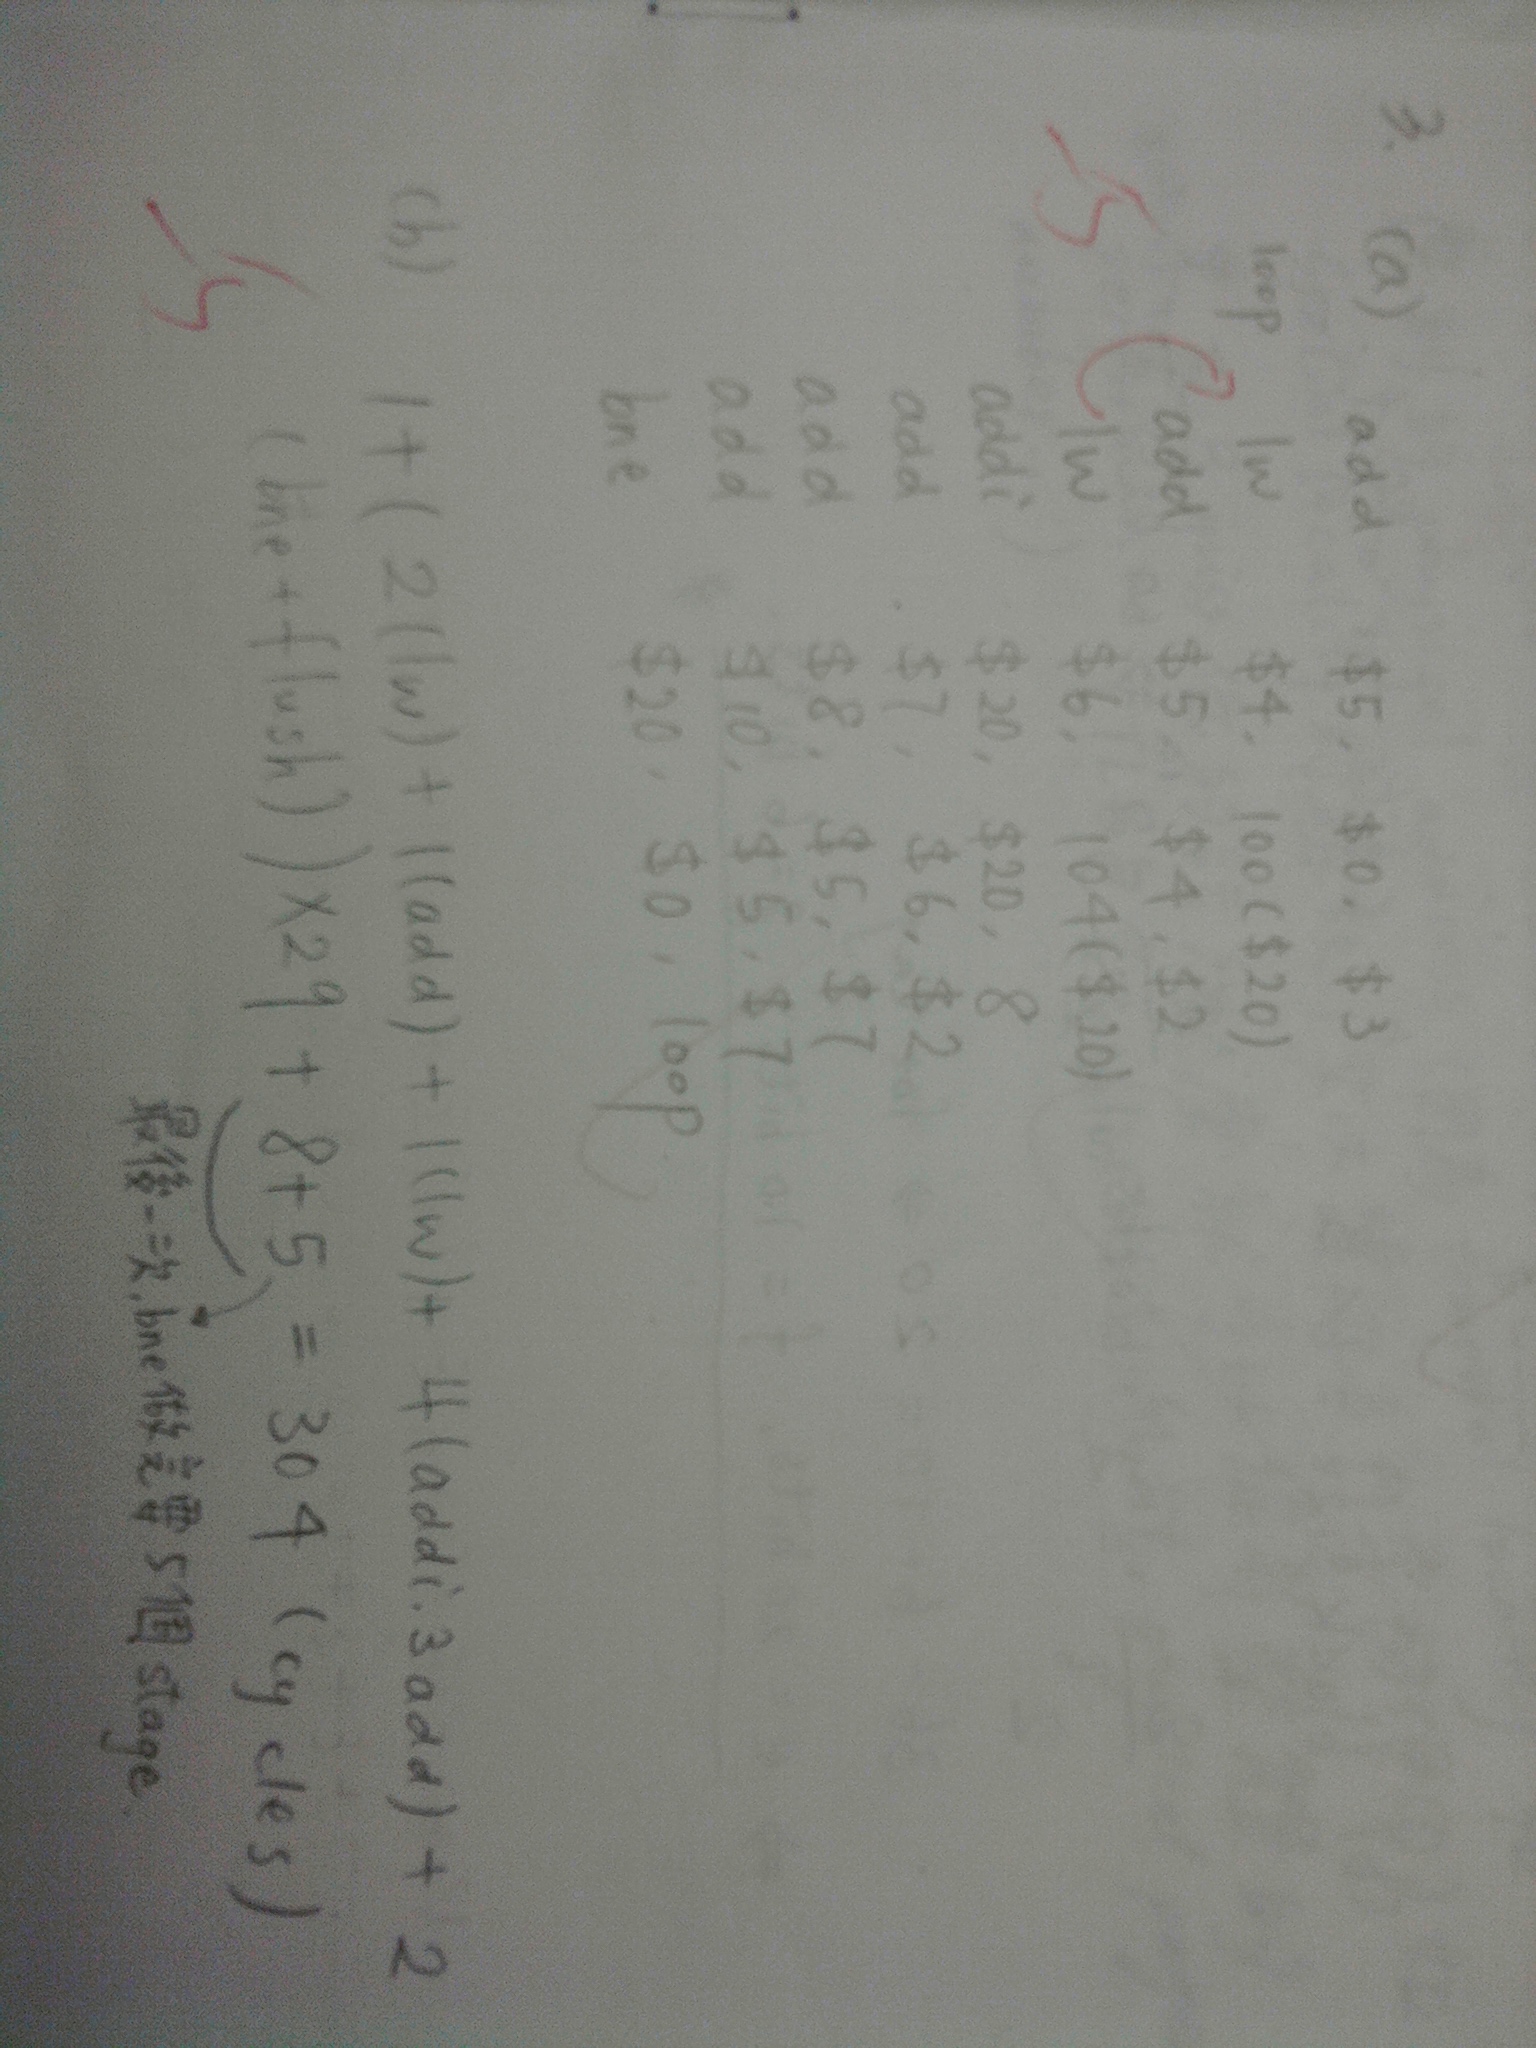 3. (a) add $5, $0, $3
loop lw $4, 100($20)
add $5, $4, $2
-5
lw $6, 104($20)
addi $20, $20, 8
add $7, $6, $2
add $8, $5, $7
add $10, $5, $7
bne $20, $0, loop
(b) 1+(2(lw)+1(add)+1(lw)+4(addi.3add)+2
(bne+flush))×29+8+5=304(cycles)
-5
最後一次,bne做完要5個stage.